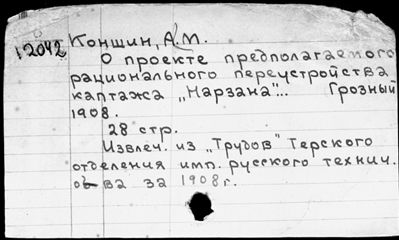 12042 Коншин, А.М.
О проекте предполагаемого
рационального переустройства
каптажа „Нарзана"... Грозный
1908.
28 стр.
Извлеч. из „Трудов" Терского
отделения имп. русского технич.
об-ва за 1908г.